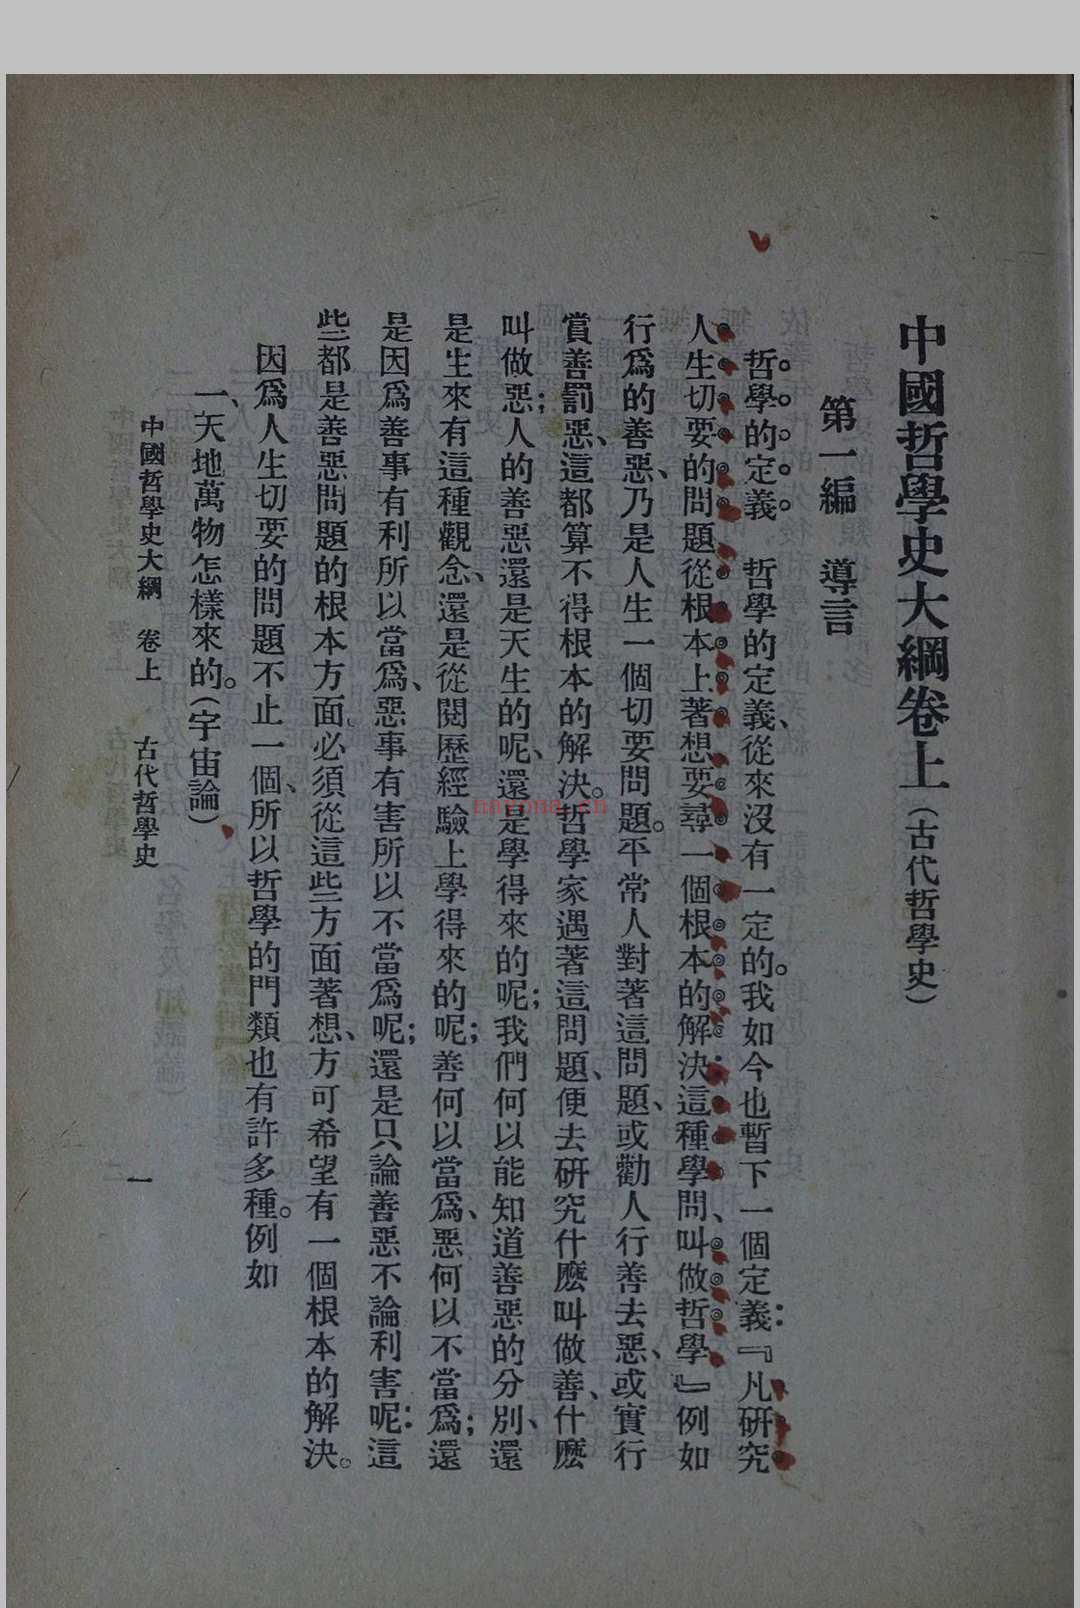 中國哲學史大綱卷上（古代哲學史）
第一編　導言
哲學的定義　哲學的定義、從來沒有一定的。我如今也暫下一個定義：『凡研究
人生切要的問題從根本上著想要尋一個根本的解決：這種學問、叫做哲學』例如
行爲的善惡、乃是人生一個切要問題。平常人對著這問題、或勸人行善去惡、或實行
賞善罰惡、這都算不得根本的解決。哲學家遇著這問題、便去研究什麽叫做善、什麽
叫做惡；人的善惡還是天生的呢、還是學得來的呢；我們何以能知道善惡的分別、還
是生來有這種觀念、還是從閱歷經驗上學得來的呢；善何以當爲、惡何以不當爲；還
是因爲善事有利所以當爲、惡事有害所以不當爲呢；還是只論善惡不論利害呢：這
些都是善惡問題的根本方面。必須從這些方面著想、方可希望有一個根本的解決。
因爲人生切要的問題不止一個、所以哲學的門類也有許多種。例如
一、天地萬物怎樣來的。（宇宙論）
中國哲學史大綱　卷上　古代哲學史
一
nayona.cn